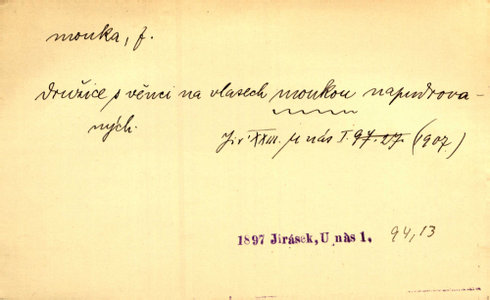 mouka, f.
Družice s věnci na vlasech moukou napudrova-
ných.
Jir XXIII. U nás I. 97. 27. (1907)
1897 Jirásek, U nás 1. 94,13